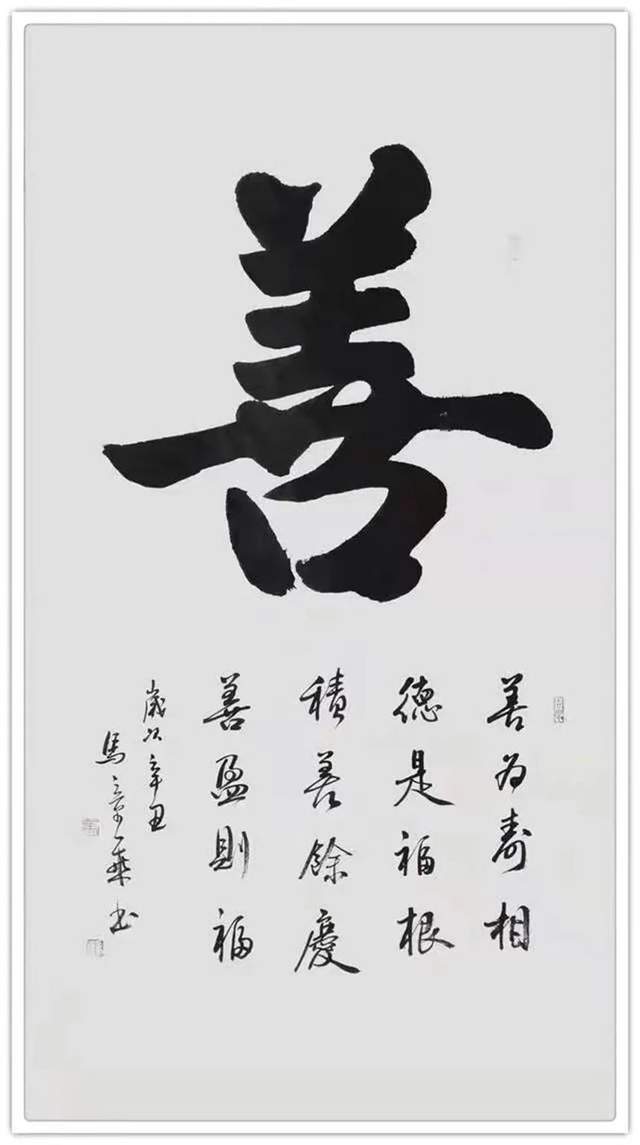 善
善為壽相
德是福根
積善餘慶
善盈則福
歲次辛丑
馬章乘書